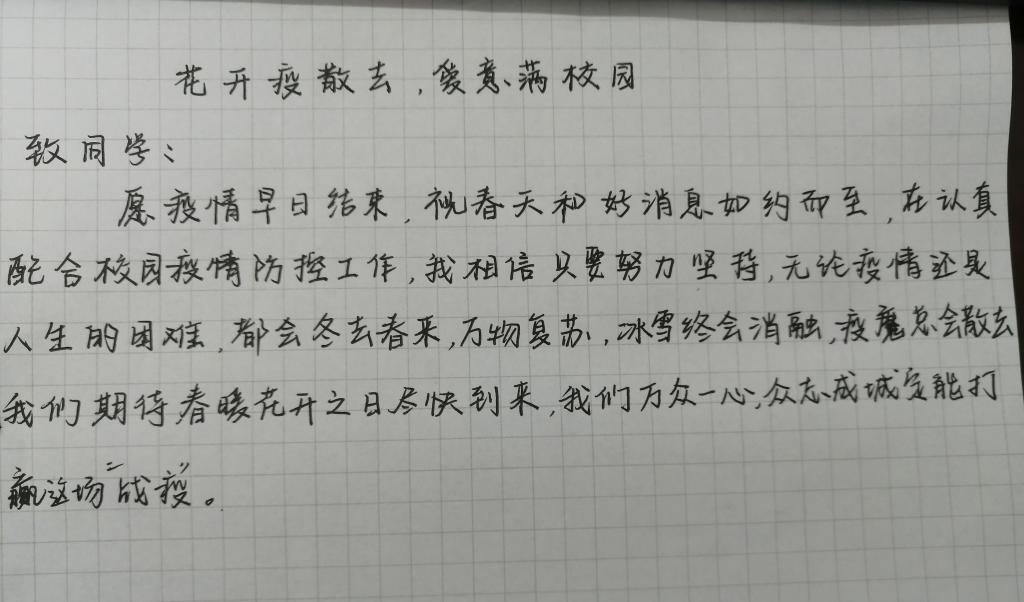 花开疫散去,爱意满校园
致同学:
愿疫情早日结束,祝春天和好消息如约而至,在认真
配合校园疫情防控工作,我相信只要努力坚持,无论疫情还是
人生的困难,都会冬去春来,万物复苏,冰雪终会消融,疫魔总会散去
我们期待春暖花开之日尽快到来,我们万众一心,众志成城定能打
赢这场“战疫”。